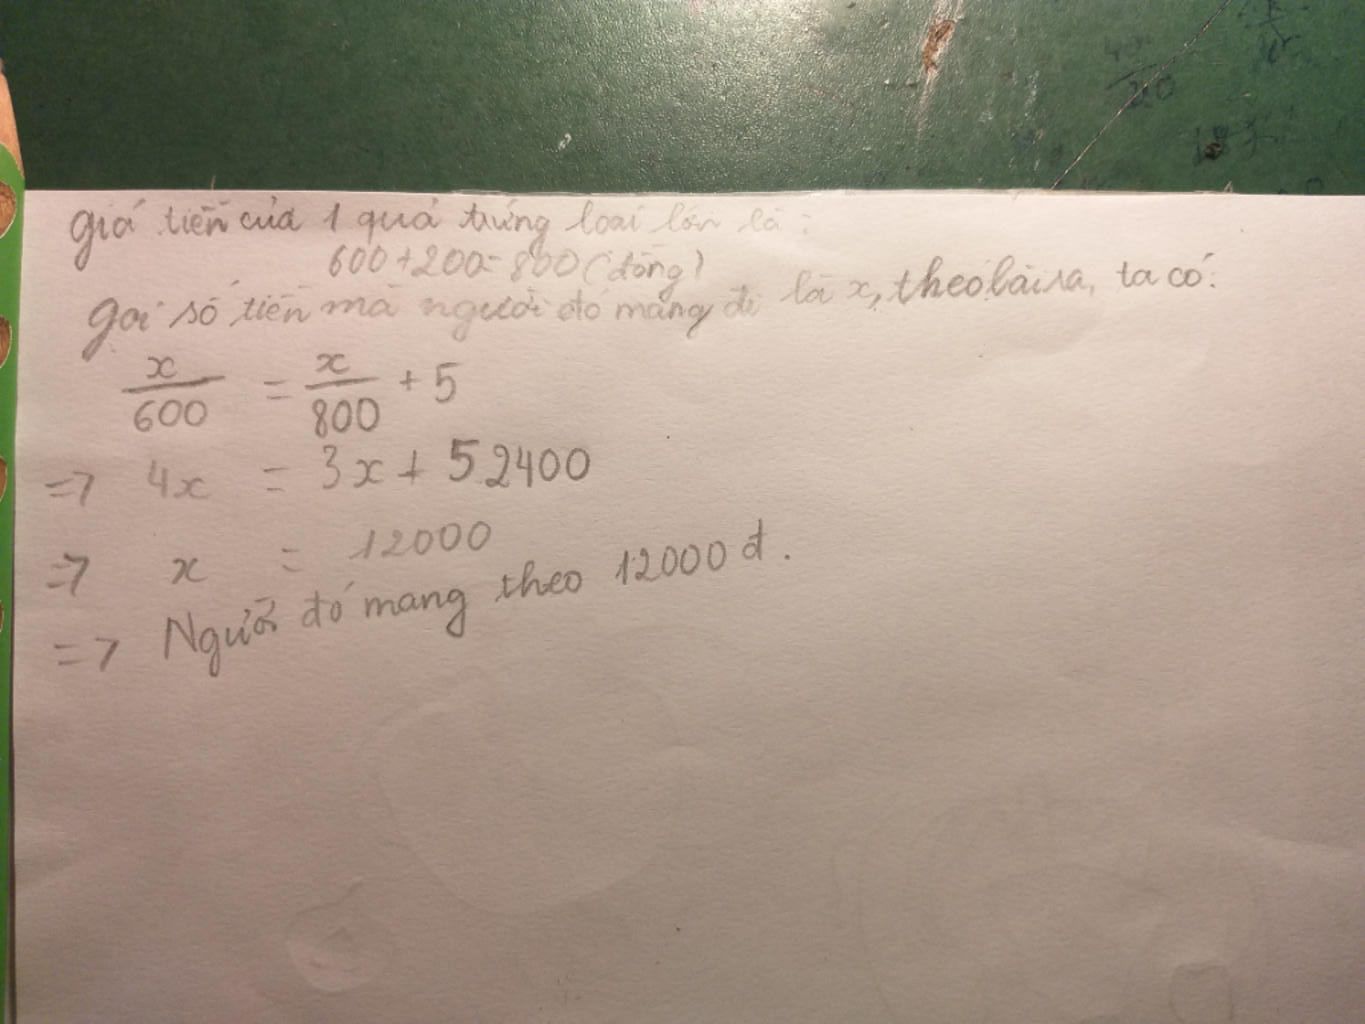 giá tiền của 1 quả trứng loại lớn là:
600+200=800(đồng)
gọi số tiền mà người đó mang đi là x, theo bài ra, ta có:
x/600 = x/800 + 5
=> 4x = 3x + 5.2400
=> x = 12000
=> Người đó mang theo 12000 đ.